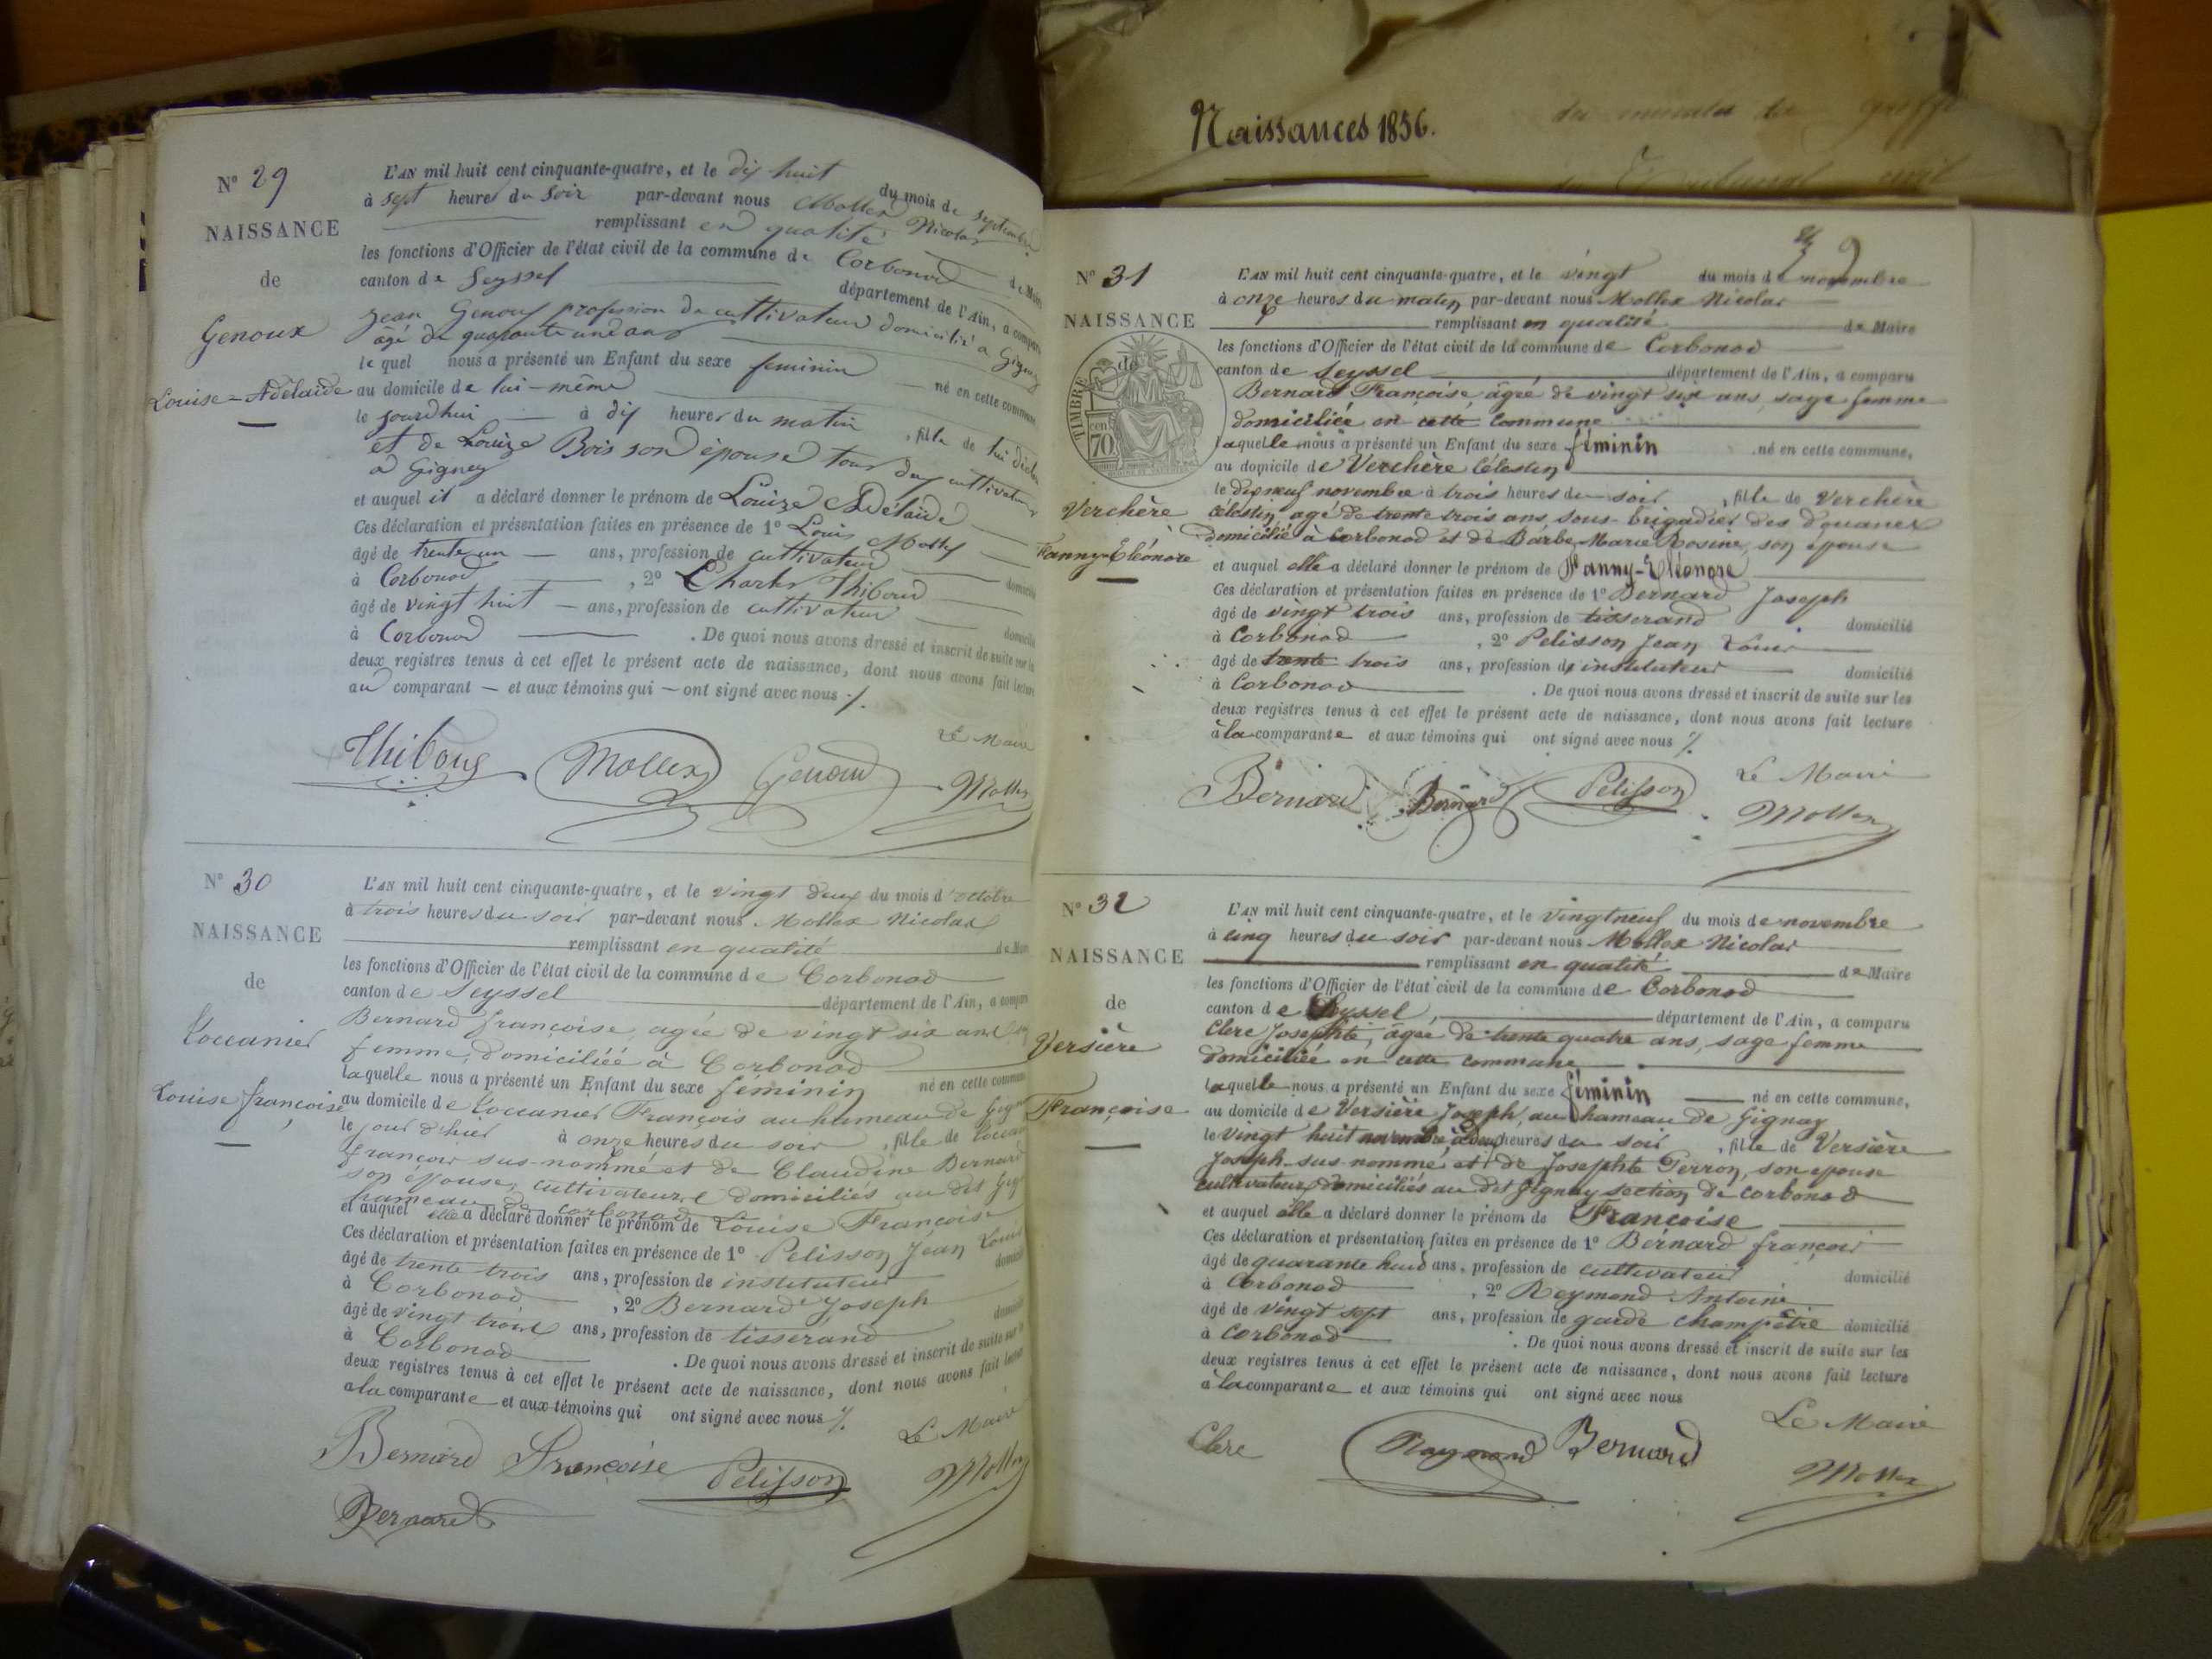 Naissances 1856.
N° 29
NAISSANCE
de
Genoux
Louise=Adélaïde
L'AN mil huit cent cinquante-quatre, et le dix huit du mois de septembre
à sept heures du soir par-devant nous Mollex Nicolas
remplissant en qualité de Maire
les fonctions d'Officier de l'état civil de la commune de Corbonod
canton de Seyssel département de l'Ain, a comparu
jean Genoux profession de cultivateur domicilié a Gignez
âgé de quarante une ans
le quel nous a présenté un Enfant du sexe feminin né en cette commune
au domicile de lui-même
le jourdhui à dix heures du matin, fille de lui
et de Louize Bois son épouse tous deux cultivateurs
a Gignez
et auquel il a déclaré donner le prénom de Louize Adélaïde
Ces déclaration et présentation faites en présence de 1° Louis Mollex
âgé de trente un ans, profession de cultivateur domicilié
à Corbonod, 2° Charles Thiboud
âgé de vingt huit ans, profession de cultivateur domicilié
à Corbonod. De quoi nous avons dressé et inscrit de suite sur les
deux registres tenus à cet effet le présent acte de naissance, dont nous avons fait lecture
au comparant et aux témoins qui ont signé avec nous
Le Maire
Thiboud Mollex Genoud Mollex
N° 30
NAISSANCE
de
Coccanier
Louise françoise
L'AN mil huit cent cinquante-quatre, et le vingt deux du mois d'octobre
à trois heures du soir par-devant nous Mollex Nicolas
remplissant en qualité de Maire
les fonctions d'Officier de l'état civil de la commune de Corbonod
canton de Seyssel département de l'Ain, a comparu
Bernard françoise, agée de vingt six ans
femme, domiciliée à Corbonod
laquelle nous a présenté un Enfant du sexe féminin né en cette commune
au domicile de Coccanier François au hameau de
le jour d'hier à onze heures du soir, fille de
françois sus-nommé et de Claudine Bernard
son épouse, cultivateurs domiciliés au dit
hameau de corbonod
et auquel elle a déclaré donner le prénom de Louise Françoise
Ces déclaration et présentation faites en présence de 1° Pelisson Jean Louis
âgé de trente trois ans, profession de instituteur domicilié
à Corbonod, 2° Bernard Joseph
âgé de vingt trois ans, profession de tisserand domicilié
à Corbonod. De quoi nous avons dressé et inscrit de suite sur les
deux registres tenus à cet effet le présent acte de naissance, dont nous avons fait lecture
a la comparante et aux témoins qui ont signé avec nous
Le Maire
Bernard Françoise Pelisson Mollex
Bernard
9
N° 31
NAISSANCE
de
TIMBRE
70 cen
Verchère
Fanny-Eléonore
L'AN mil huit cent cinquante-quatre, et le vingt du mois de novembre
à onze heures du matin par-devant nous Mollex Nicolas
remplissant en qualité de Maire
les fonctions d'Officier de l'état civil de la commune de Corbonod
canton de Seyssel département de l'Ain, a comparu
Bernard Françoise, âgée de vingt six ans, sage femme
domiciliée en cette commune
laquelle nous a présenté un Enfant du sexe féminin né en cette commune,
au domicile de Verchère Célestin
le dix neuf novembre à trois heures du soir, fille de Verchère
Célestin, agé de trente trois ans, sous-brigadier des douanes
domicilié à Corbonod et de Barbe Marie Rosine, son épouse
et auquel elle a déclaré donner le prénom de Fanny-Eléonore
Ces déclaration et présentation faites en présence de 1° Bernard Joseph
âgé de vingt trois ans, profession de tisserand domicilié
à Corbonod, 2° Pelisson Jean Louis
âgé de trente trois ans, profession de instituteur domicilié
à Corbonod. De quoi nous avons dressé et inscrit de suite sur les
deux registres tenus à cet effet le présent acte de naissance, dont nous avons fait lecture
à la comparante et aux témoins qui ont signé avec nous
Le Maire
Bernard Bernard Pelisson Mollex
N° 32
NAISSANCE
de
Versière
Françoise
L'AN mil huit cent cinquante-quatre, et le vingtneuf du mois de novembre
à cinq heures du soir par-devant nous Mollex Nicolas
remplissant en qualité de Maire
les fonctions d'Officier de l'état civil de la commune de Corbonod
canton de Seyssel, département de l'Ain, a comparu
Clerc Josephte, âgée de trente quatre ans, sage femme
domiciliée en cette commune
laquelle nous a présenté un Enfant du sexe féminin né en cette commune,
au domicile de Versière Joseph, au hameau de Gignay
le vingt huit novembre à deux heures du soir, fille de Versière
Joseph sus-nommé, et de Josephte Perron, son épouse
cultivateurs domiciliés au dit Gignay section de corbonod
et auquel elle a déclaré donner le prénom de Françoise
Ces déclaration et présentation faites en présence de 1° Bernard françois
âgé de quarante huit ans, profession de cultivateur domicilié
à Corbonod, 2° Reymond Antoine
âgé de vingt sept ans, profession de garde champêtre domicilié
à Corbonod. De quoi nous avons dressé et inscrit de suite sur les
deux registres tenus à cet effet le présent acte de naissance, dont nous avons fait lecture
à la comparante et aux témoins qui ont signé avec nous
Le Maire
Clerc Raymond Bernard Mollex